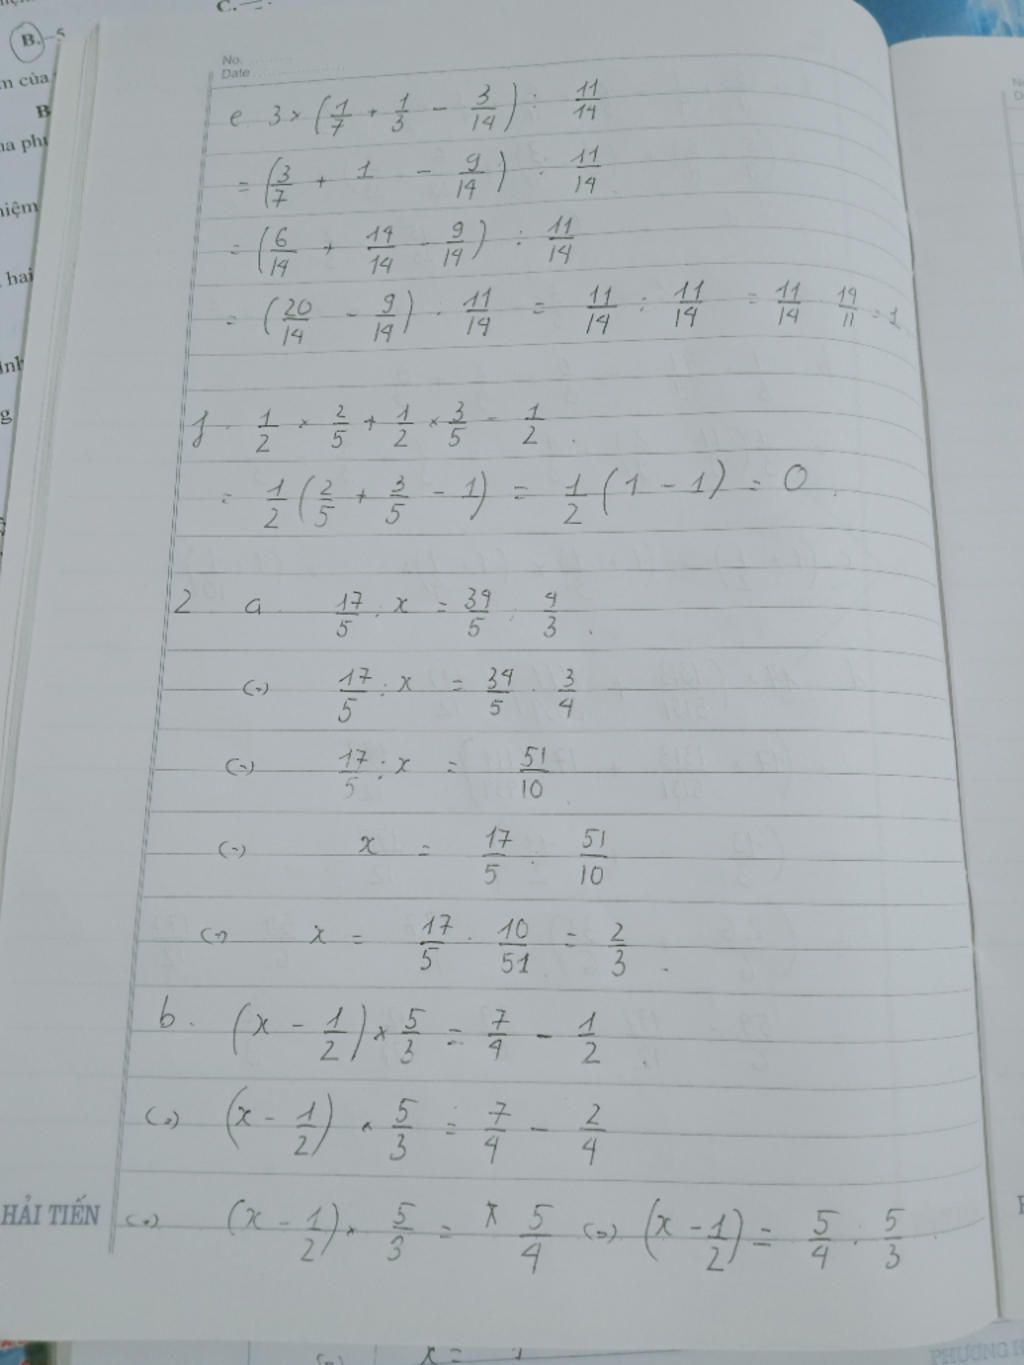 C.
B. -5
m của
B
hiệm
hai
ình
g
No.
Date
e. 3 × (1/7 + 1/3 - 3/14) : 11/14
= (3/7 + 1 - 9/14) : 11/14
= (6/14 + 14/14 - 9/14) : 11/14
= (20/14 - 9/14) : 11/14 = 11/14 : 11/14 = 11/14 . 14/11 = 1
f. 1/2 × 2/5 + 1/2 × 3/5 - 1/2
= 1/2 (2/5 + 3/5 - 1) = 1/2 (1 - 1) = 0
2 a. 17/5 : x = 34/5 : 4/3
(=) 17/5 : x = 34/5 . 3/4
(=) 17/5 : x = 51/10
(=) x = 17/5 : 51/10
(=) x = 17/5 . 10/51 = 2/3
b. (x - 1/2) × 5/3 = 7/4 - 1/2
(=) (x - 1/2) × 5/3 = 7/4 - 2/4
(=) (x - 1/2) × 5/3 = 5/4 (=) (x - 1/2) = 5/4 : 5/3
HẢI TIẾN
x =